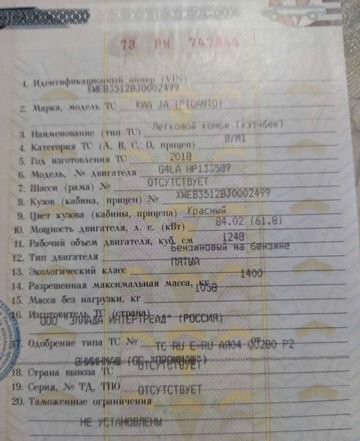 73 РМ 747944
1. Идентификационный номер (VIN) XWEB3512BJ0002499
2. Марка, модель ТС КИА JA (PICANTO)
3. Наименование (тип ТС) Легковой комби (хэтчбек)
4. Категория ТС (А, В, С, D, прицеп) В/М1
5. Год изготовления ТС 2018
6. Модель, № двигателя G4LA HP133589
7. Шасси (рама) № ОТСУТСТВУЕТ
8. Кузов (кабина, прицеп) № XWEB3512BJ0002499
9. Цвет кузова (кабины, прицепа) Красный
10. Мощность двигателя, л. с. (кВт) 84.02 (61.8)
11. Рабочий объем двигателя, куб. см 1248
12. Тип двигателя Бензиновый на бензине
13. Экологический класс ПЯТЫЙ
14. Разрешенная максимальная масса, кг 1400
15. Масса без нагрузки, кг 1058
16. Изготовитель ТС (страна)
ООО "ЭЛЛАДА ИНТЕРТРЕЙД" (РОССИЯ)
17. Одобрение типа ТС № ТС RU E-RU.АЯ04.00280.Р2 от
18. Страна вывоза ТС ОТСУТСТВУЕТ
19. Серия, № ТД, ТПО ОТСУТСТВУЕТ
20. Таможенные ограничения
НЕ УСТАНОВЛЕНЫ